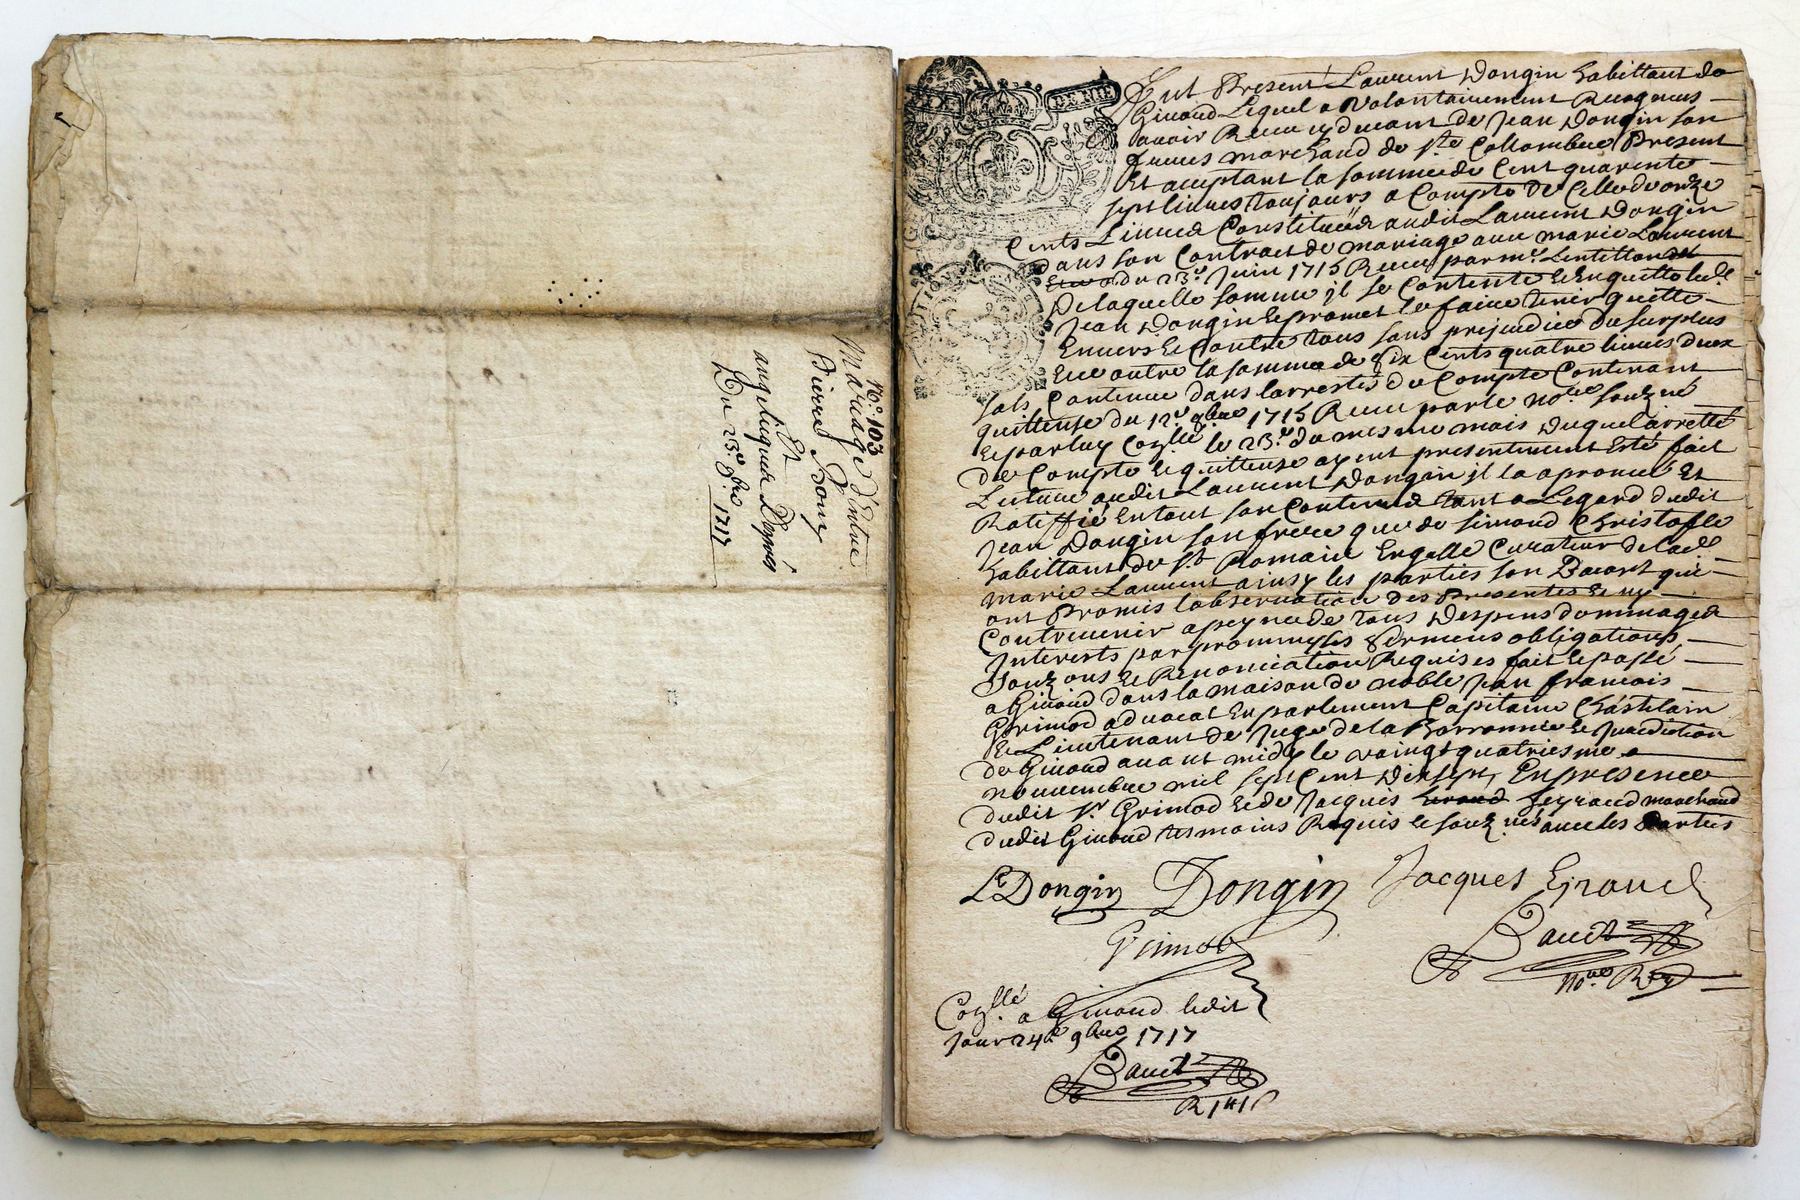 N.º 103
Mariage d'Entre
Pierre
Et
angelique
Du 23.e 9bre 1717
Fut Present Laurent Dongin habittant de
Givord Lequel a Volontairement Recognus
avoir Receu cy devant de Jean Dongin son
freres marchand de Ste Collombe Present
Et aceptant la somme de Cent quarente
sept livres toujours a Compte de Celle de onze
Cents Livres Constituée audit Laurent Dongin
dans son Contract de mariage avec marie Laurent
du 23.e Juin 1715 Receu par me.
De laquelle somme jl se Contente Et en quitte led.
Jean Dongin Et promet le faire tenir quitte
Envers Et Contre tous sans prejudice du surplus
Et outre la somme de six Cents quatre livres deux
sols Contenue dans larresté de Compte Contenant
quittense du 12.e 9bre 1715 Receu par le no.re souzné
Et par luy Con.llé le 23.e du mesme mois duquel arretté
de Compte Et quittense ayent presentement Esté fait
Lecture audit Laurent Dongin jl la aprouvé Et
Ratiffié En tout son Contenu tant a Legard dudit
Jean Dongin son frere que de simond Christofle
habittant de St Romain En Curateur de lad.
marie Laurent ainsy les parties son Dacort qui
ont Promis lobservation des Presentes Et ny
Contrevenir a peyne de tous Despens dommages
Interests par serments obligations
Et Renonciation Requises fait Et passé
a Givord dans la maison de noble Jean francois
Grimod advocat En parlement Capitaine Chastelain
Et Lieutenant de Juge de la Barronnie Et Juridiction
de Givord avant midy le vaingt quatriesme
novembre mil sept Cent Dixsept, En presence
dudit Sr. Grimod Et de Jacques Eyraud marchand
dudit Givord tesmoins Requis Et souz.nés avec les Parties
L Dongin Dongin Jacques Eyraud
Grimod
Baud
no.re Ry
Con.llé a Givord ledit
Jour 24e 9bre 1717
Baud